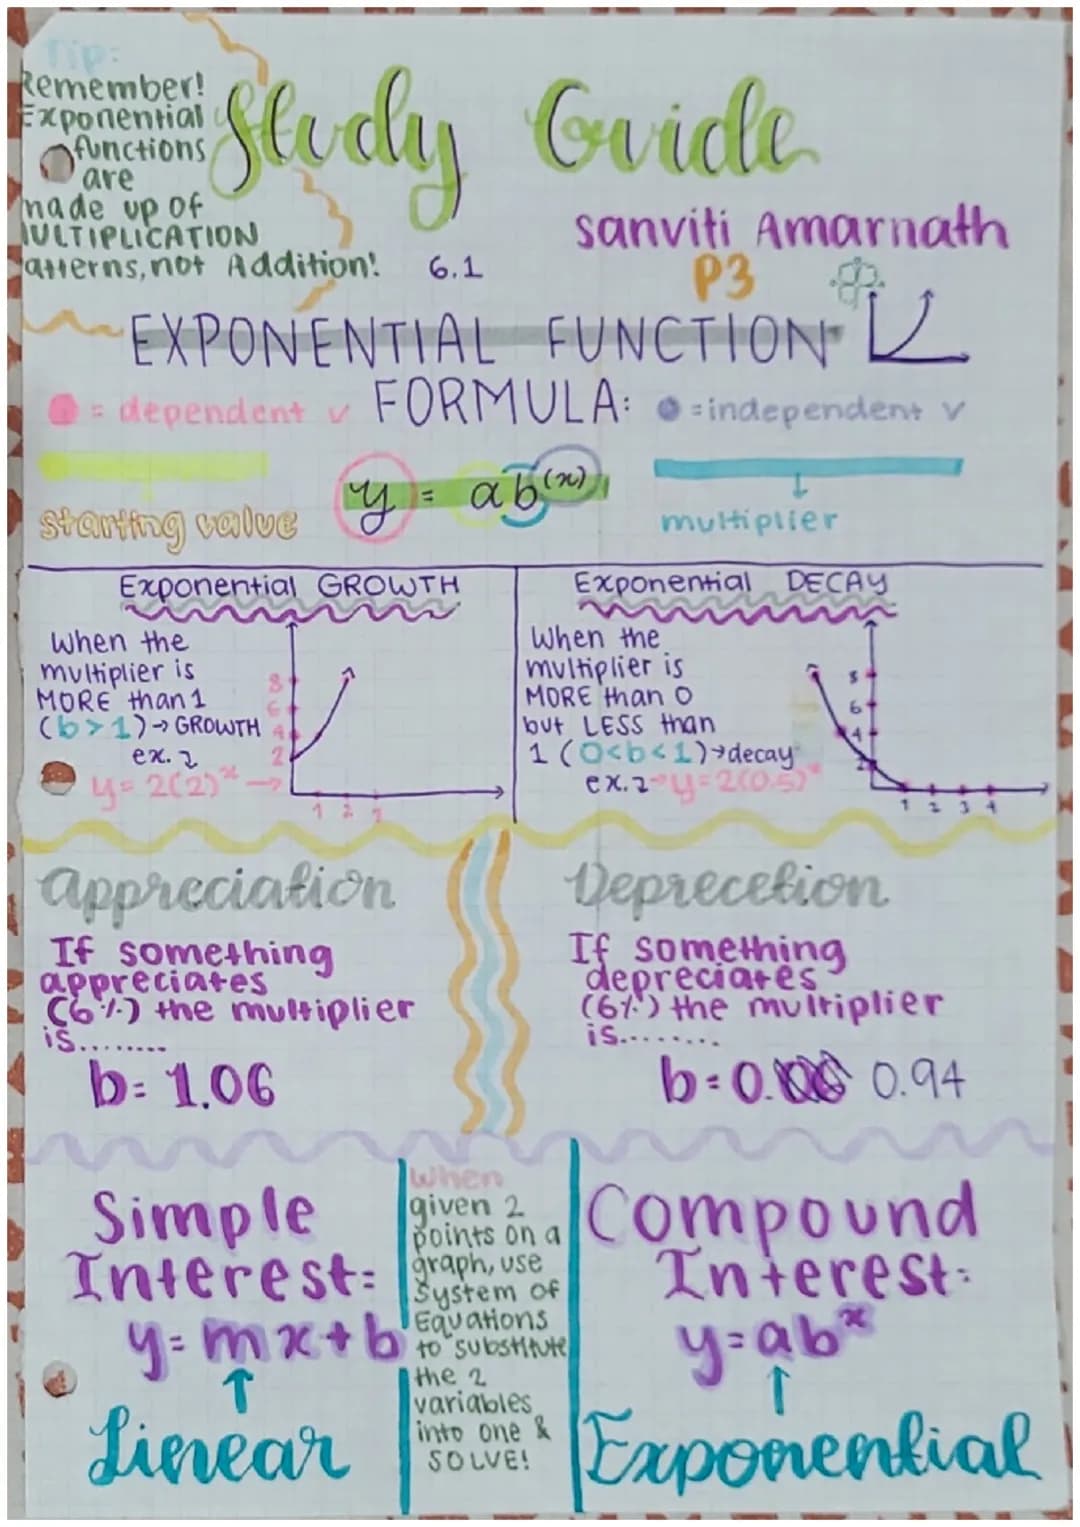 Tip:
Remember!
Exponential
functions
are
made up of
MULTIPLICATION
Patterns, not Addition!
Study Guide
sanviti Amarnath
6.1
P3
EXPONENTIAL FUNCTION
FORMULA:
= dependent v
= independent v
y = ab(x)
starting value
multiplier
Exponential GROWTH
When the
multiplier is
MORE than 1
(b > 1) → GROWTH
ex. 2
y = 2(2)^x →
8
6
4
2
1 2 3
Exponential DECAY
When the
multiplier is
MORE than 0
but LESS than
1 (0<b<1) → decay
ex. 2 → y = 2(0.5)^x
8
6
4
2
1 2 3 4
Appreciation
If something
appreciates
(6%) the multiplier
is........
b = 1.06
Deprecetion
If something
depreciates
(6%) the multiplier
is........
b = 0. 0.94
Simple
Interest:
y = mx + b
Linear
When
given 2
points on a
graph, use
System of
Equations
to substitute
the 2
variables
into one &
SOLVE!
Compound
Interest:
y = ab^x
Exponential